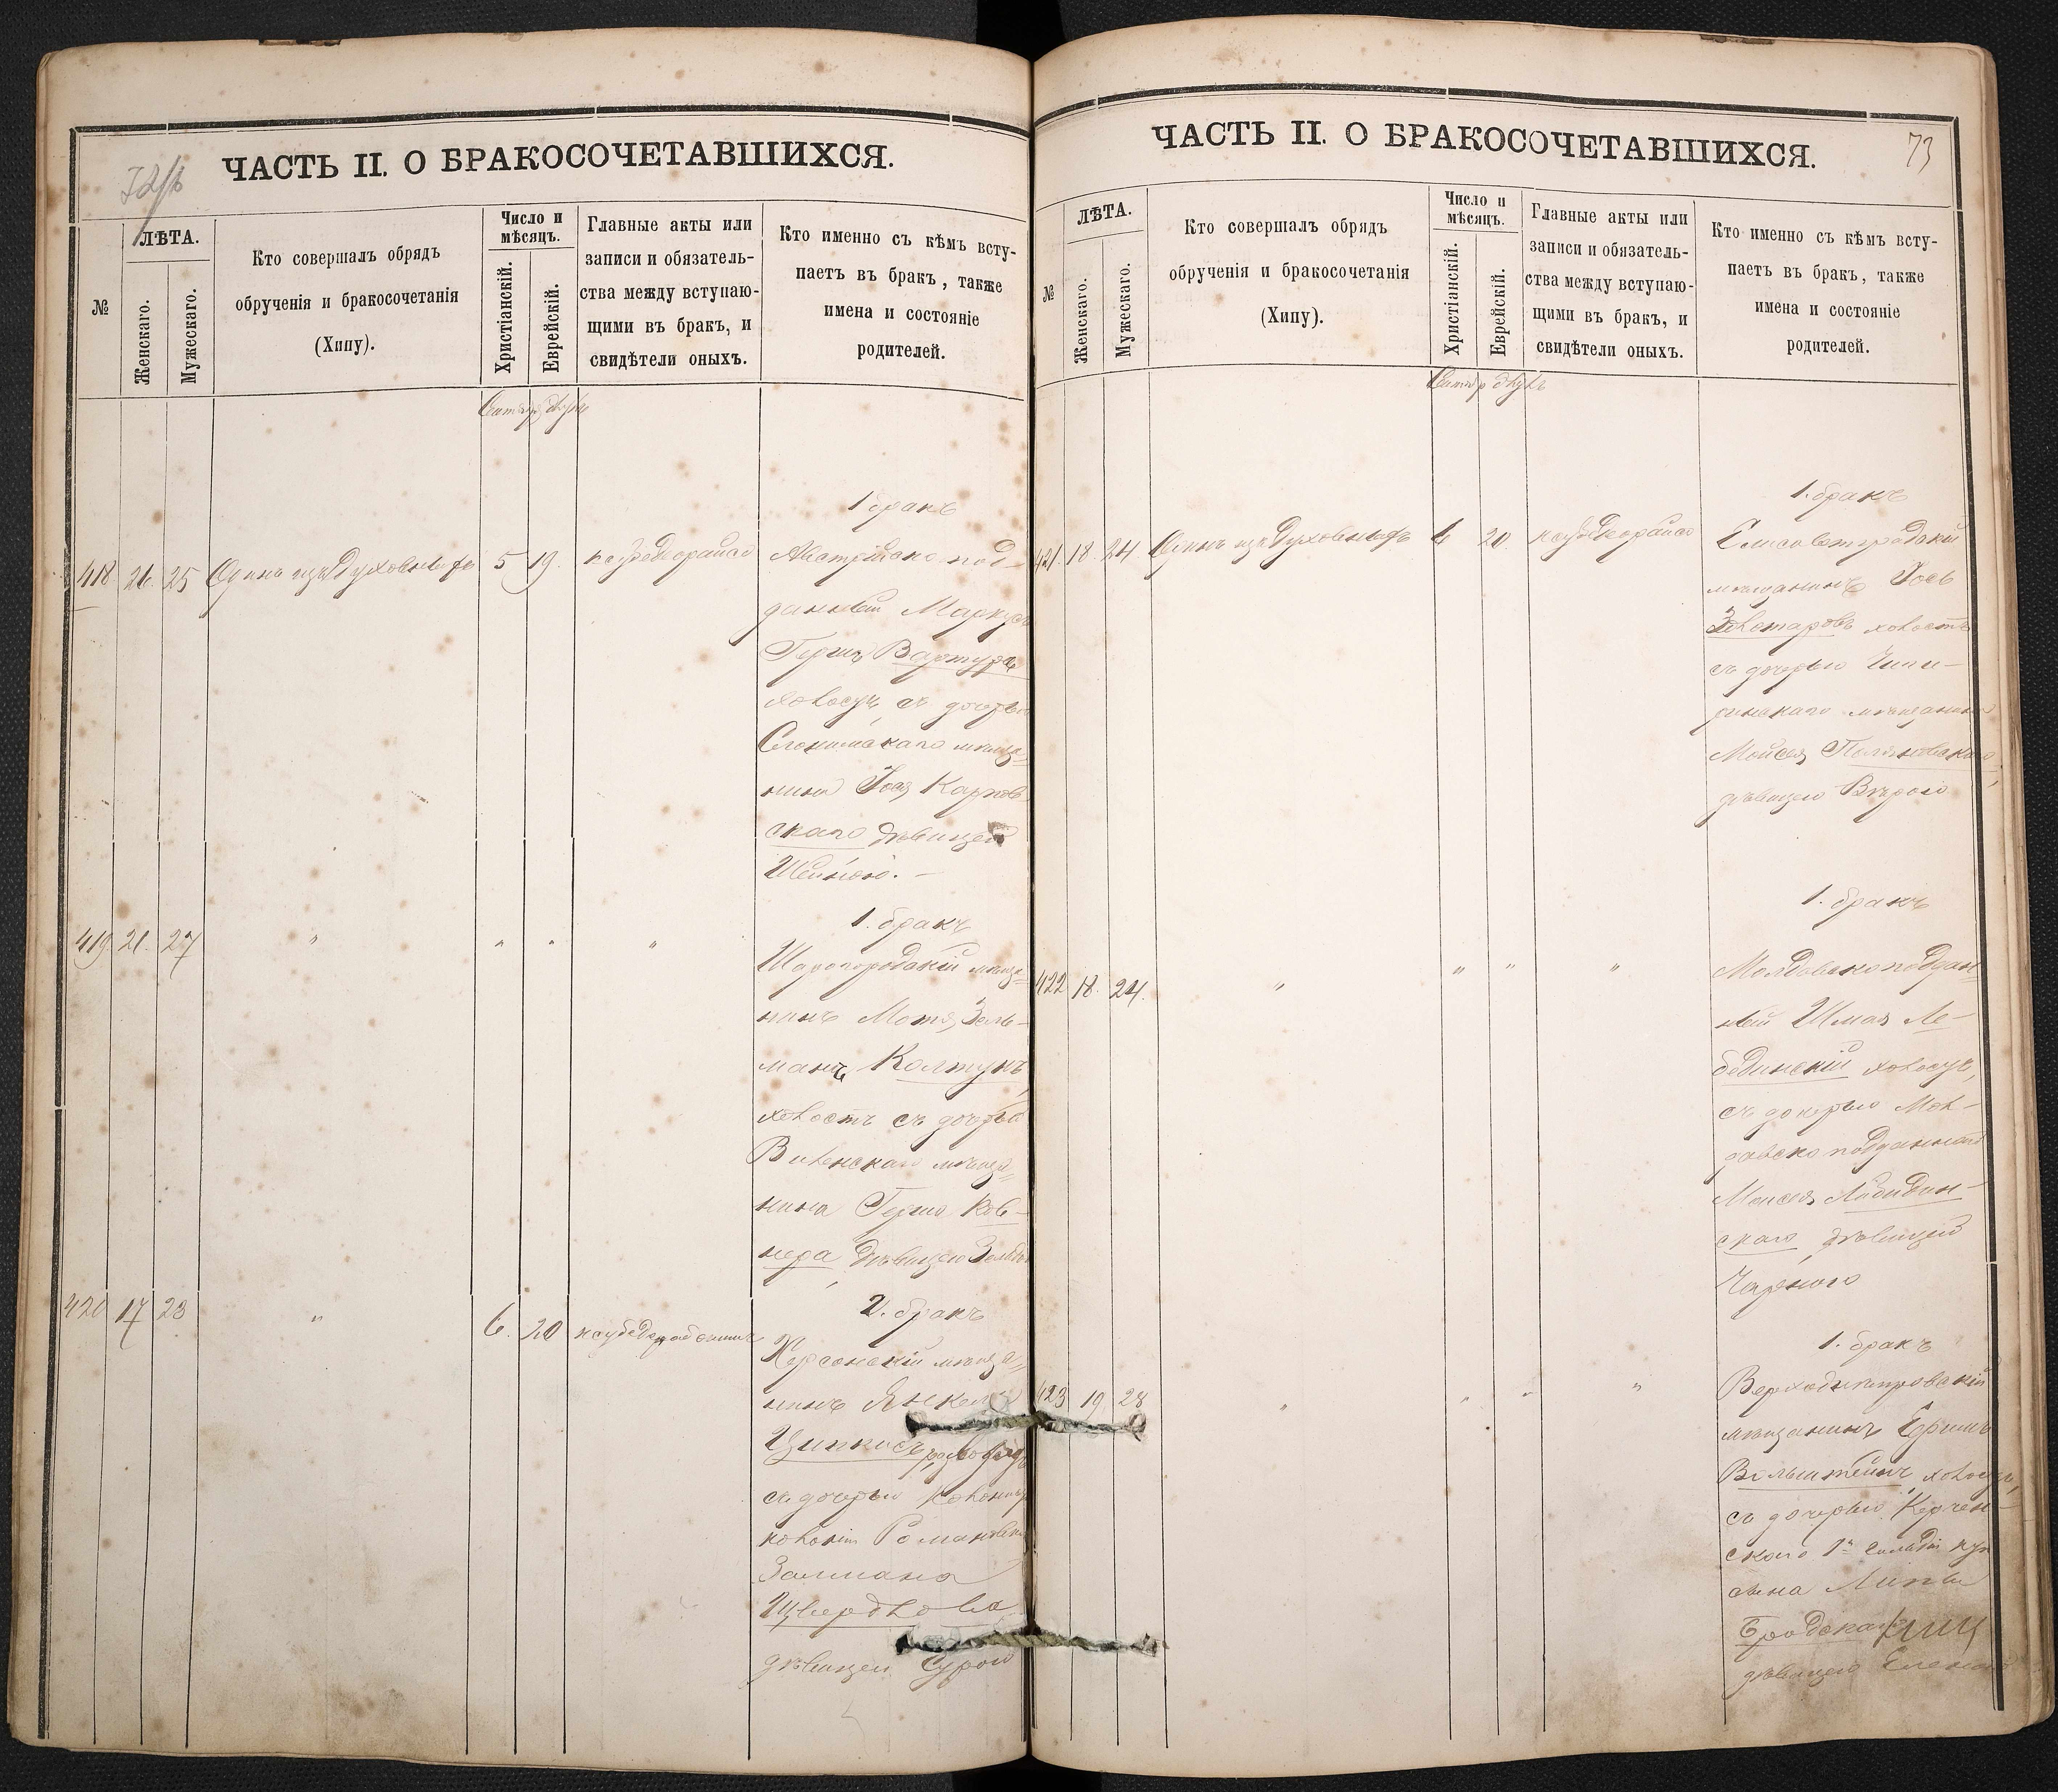 ЧАСТЬ II. О БРАКОСОЧЕТАВШИХСЯ.
№
ЛѢТА.
Женскаго.
Мужескаго.
Кто совершалъ обрядъ
обрученія и бракосочетанія
(Хипу).
Число и
мѣсяцъ.
Христіанскій.
Еврейскій.
Главные акты или
записи и обязатель-
ства между вступаю-
щими въ бракъ, и
свидѣтели оныхъ.
Кто именно съ кѣмъ всту-
паетъ въ бракъ, также
имена и состояніе
родителей.
418 26 25 Одинъ изъ Духовныхъ 5 19.
1 бракъ
Австрійско под-
данный Маркусъ
Гершъ Вартуръ
холостъ, съ дочерью
Слонимскаго мѣща-
нина Іося Карпов-
скаго дѣвицею
Шейною. -
419. 21. 27 " " " "
1. бракъ
Шарогородскій мѣща-
нинъ Мотя Зель-
манъ Колтунъ,
холостъ съ дочерью
Виленскаго мѣща-
нина Герша Ков-
нера дѣвицею
420 17 23 " 6. 20
2. бракъ
Херсонскій мѣща-
нинъ Янкель
Ципкисъ,
съ дочерью
колоніи Романовки
Залмана
дѣвицею Сурою
ЧАСТЬ II. О БРАКОСОЧЕТАВШИХСЯ.
73
№
ЛѢТА.
Женскаго.
Мужескаго.
Кто совершалъ обрядъ
обрученія и бракосочетанія
(Хипу).
Число и
мѣсяцъ.
Христіанскій.
Еврейскій.
Главные акты или
записи и обязатель-
ства между вступаю-
щими въ бракъ, и
свидѣтели оныхъ.
Кто именно съ кѣмъ всту-
паетъ въ бракъ, также
имена и состояніе
родителей.
421. 18. 24 Одинъ изъ Духовныхъ 6 20
1. бракъ
Елисаветградскій
мѣщанинъ Іось
Золотаровъ холостъ
съ дочерью Чиги-
ринскаго мѣщанина
Мойсея
дѣвицею Вѣрою
422 18. 24. " " " "
1. бракъ
Молдавско поддан-
ный Шмая Ле-
бединскій холостъ,
съ дочерью Мол-
давско подданнаго
Моисея Лебедин-
скаго дѣвицей
Чарною
423 19 28 " " " "
1. бракъ
Верходнѣпровскій
мѣщанинъ Ефимъ
Вольштейнъ, холостъ,
съ дочерью Керчен-
скаго 1й гильдіи куп
сына Липы
Бродскаго
дѣвицею Еленою